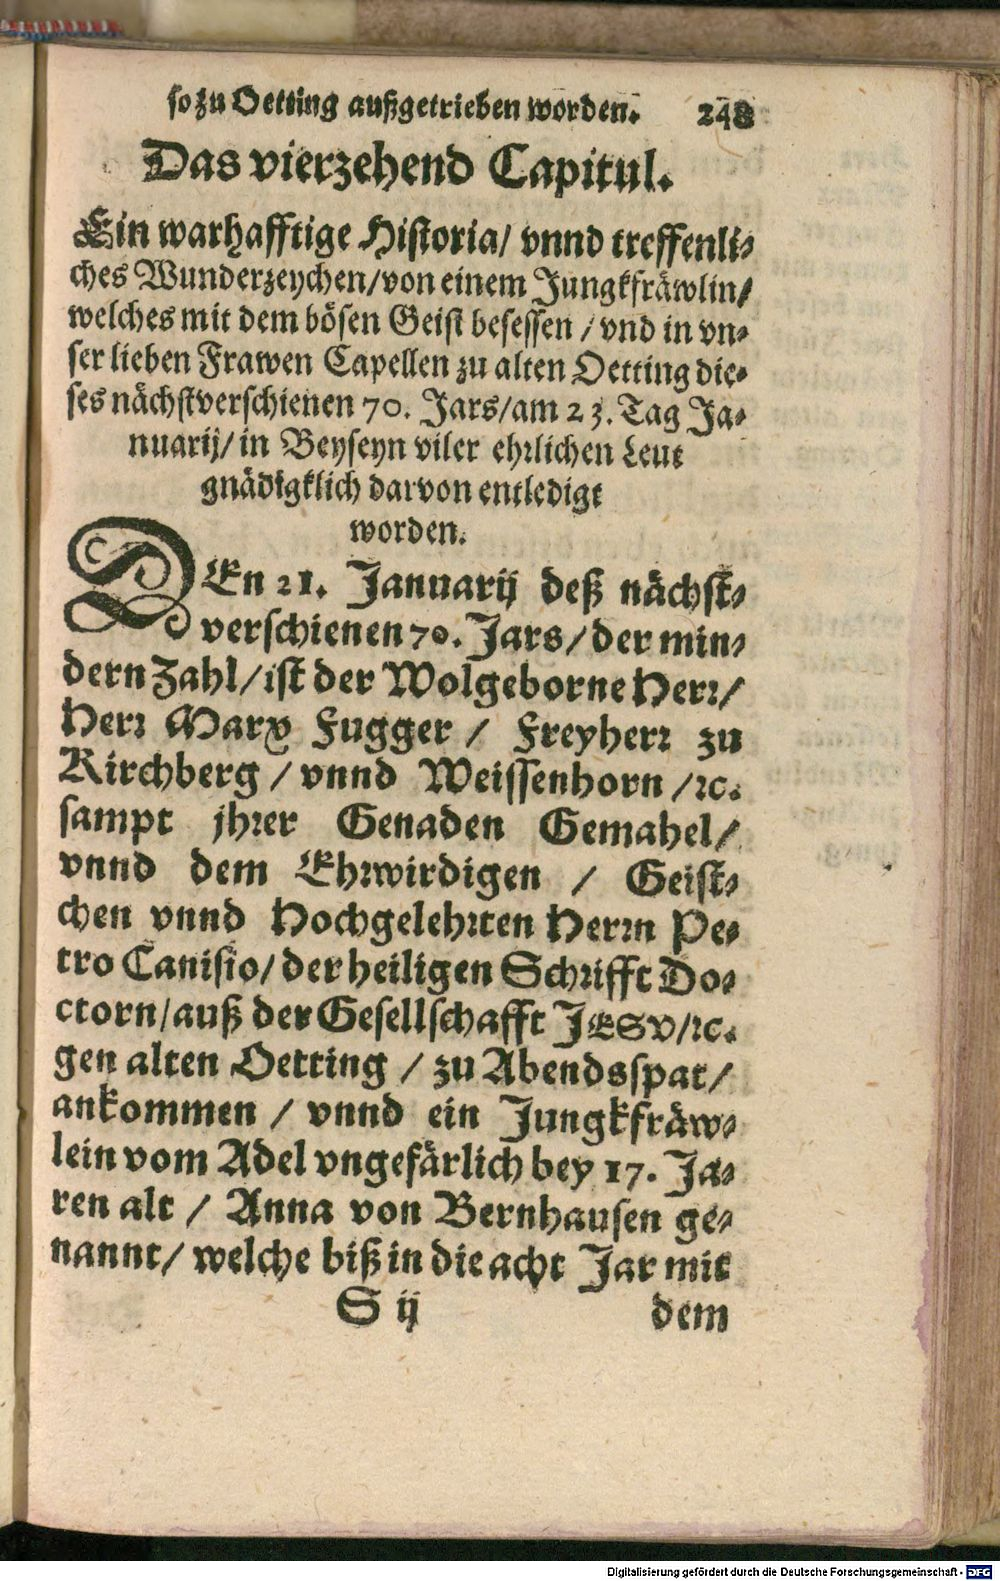 so zu Oetting außgetrieben worden. 248
Das vierzehend Capitul.
Ein warhafftige Historia/ vnnd treffenli-
ches Wunderzeychen/von einem Jungkfräwlin/
welches mit dem bösen Geist besessen / vnd in vn-
ser lieben Frawen Capellen zu alten Oetting die-
ses nächstverschienen 70. Jars/am 23. Tag Ja-
nuarij/ in Beyseyn viler ehrlichen Leut
gnädigklich darvon entledigt
worden.
DEn 21. Januarij deß nächst-
verschienen 70. Jars/ der min-
dern Zahl/ ist der Wolgeborne Herr/
Herr Marx Fugger / Freyherr zu
Kirchberg / vnnd Weissenhorn /ꝛc.
sampt jhrer Genaden Gemahel/
vnnd dem Ehrwirdigen / Geist-
chen vnnd Hochgelehrten Herrn Pe-
tro Canisio/ der heiligen Schrifft Do-
ctorn/auß der Gesellschafft JESV/ꝛc.
gen alten Oetting / zu Abendsspat/
ankommen / vnnd ein Jungkfräw-
lein vom Adel vngefärlich bey 17. Ja-
ren alt / Anna von Bernhausen ge-
nannt/ welche biß in die acht Jar mit
S ij dem
Digitalisierung gefördert durch die Deutsche Forschungsgemeinschaft - DFG